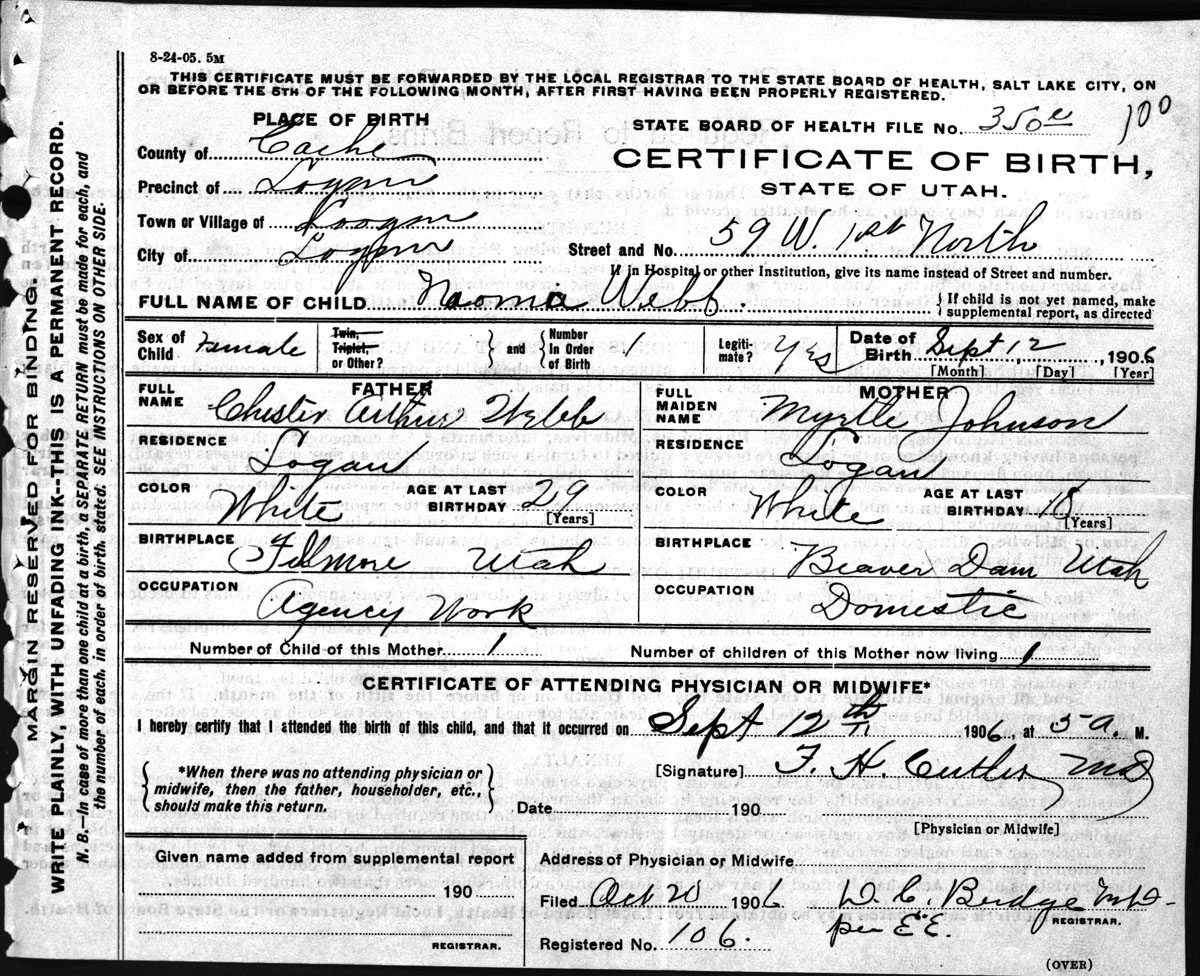 8-24-05. 5M
THIS CERTIFICATE MUST BE FORWARDED BY THE LOCAL REGISTRAR TO THE STATE BOARD OF HEALTH, SALT LAKE CITY, ON
OR BEFORE THE 5TH OF THE FOLLOWING MONTH, AFTER FIRST HAVING BEEN PROPERLY REGISTERED.
PLACE OF BIRTH
STATE BOARD OF HEALTH FILE No.
100
County of Cache
CERTIFICATE OF BIRTH,
Precinct of Logan
STATE OF UTAH.
Town or Village of Logan
City of Logan
Street and No. 59 W. 1st North
If in Hospital or other Institution, give its name instead of Street and number.
FULL NAME OF CHILD Naoma Webb
If child is not yet named, make
supplemental report, as directed
Sex of Child Female
Twin, Triplet, or Other?
and
Number In Order of Birth 1
Legitimate? Yes
Date of Birth Sept 12, 1906
[Month] [Day] [Year]
FATHER
FULL NAME Chester Arthur Webb
MOTHER
FULL MAIDEN NAME Myrtle Johnson
RESIDENCE Logan
RESIDENCE Logan
COLOR White
AGE AT LAST BIRTHDAY 29 [Years]
COLOR White
AGE AT LAST BIRTHDAY 18 [Years]
BIRTHPLACE Fillmore Utah
BIRTHPLACE Beaver Dam Utah
OCCUPATION Agency Work
OCCUPATION Domestic
Number of Child of this Mother 1
Number of children of this Mother now living 1
CERTIFICATE OF ATTENDING PHYSICIAN OR MIDWIFE*
I hereby certify that I attended the birth of this child, and that it occurred on Sept 12th 1906, at 5 a. M.
*When there was no attending physician or
midwife, then the father, householder, etc.,
should make this return.
[Signature] F. H. Cutler MD
Date 190
[Physician or Midwife]
Given name added from supplemental report
190
REGISTRAR.
Address of Physician or Midwife
Filed Oct 20 1906 D. C. Budge MD
REGISTRAR.
per E.E.
Registered No. 106.
(OVER)
MARGIN RESERVED FOR BINDING.
WRITE PLAINLY, WITH UNFADING INK--THIS IS A PERMANENT RECORD.
N. B.--In case of more than one child at a birth a SEPARATE RETURN must be made for each, and
the number of each, in order of birth, stated. SEE INSTRUCTIONS ON OTHER SIDE.